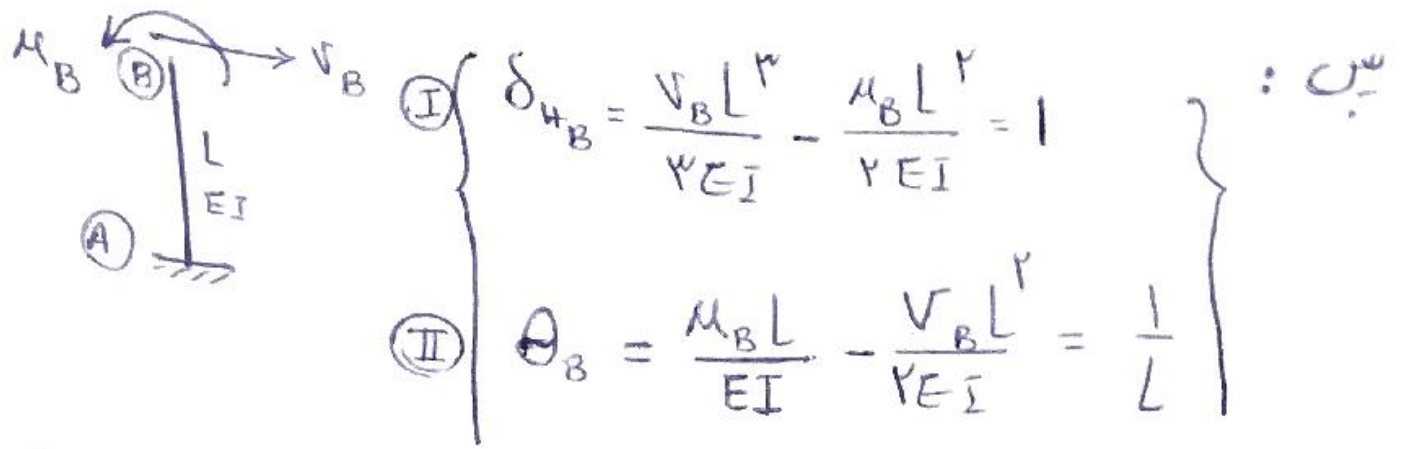 پس :
M_B Ⓑ V_B
L
EI
Ⓐ
Ⓘ δ_{H_B} = V_B L^۳ / ۳EI - M_B L^۲ / ۲EI = ۱
Ⅱ θ_B = M_B L / EI - V_B L^۲ / ۲EI = ۱ / L